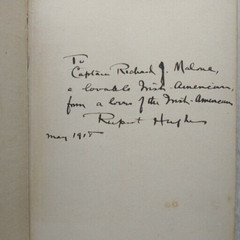 To
Captain Richard J. Malone,
a lovable Irish-American,
from a lover of the Irish-American
Rupert Hughes
May 1915